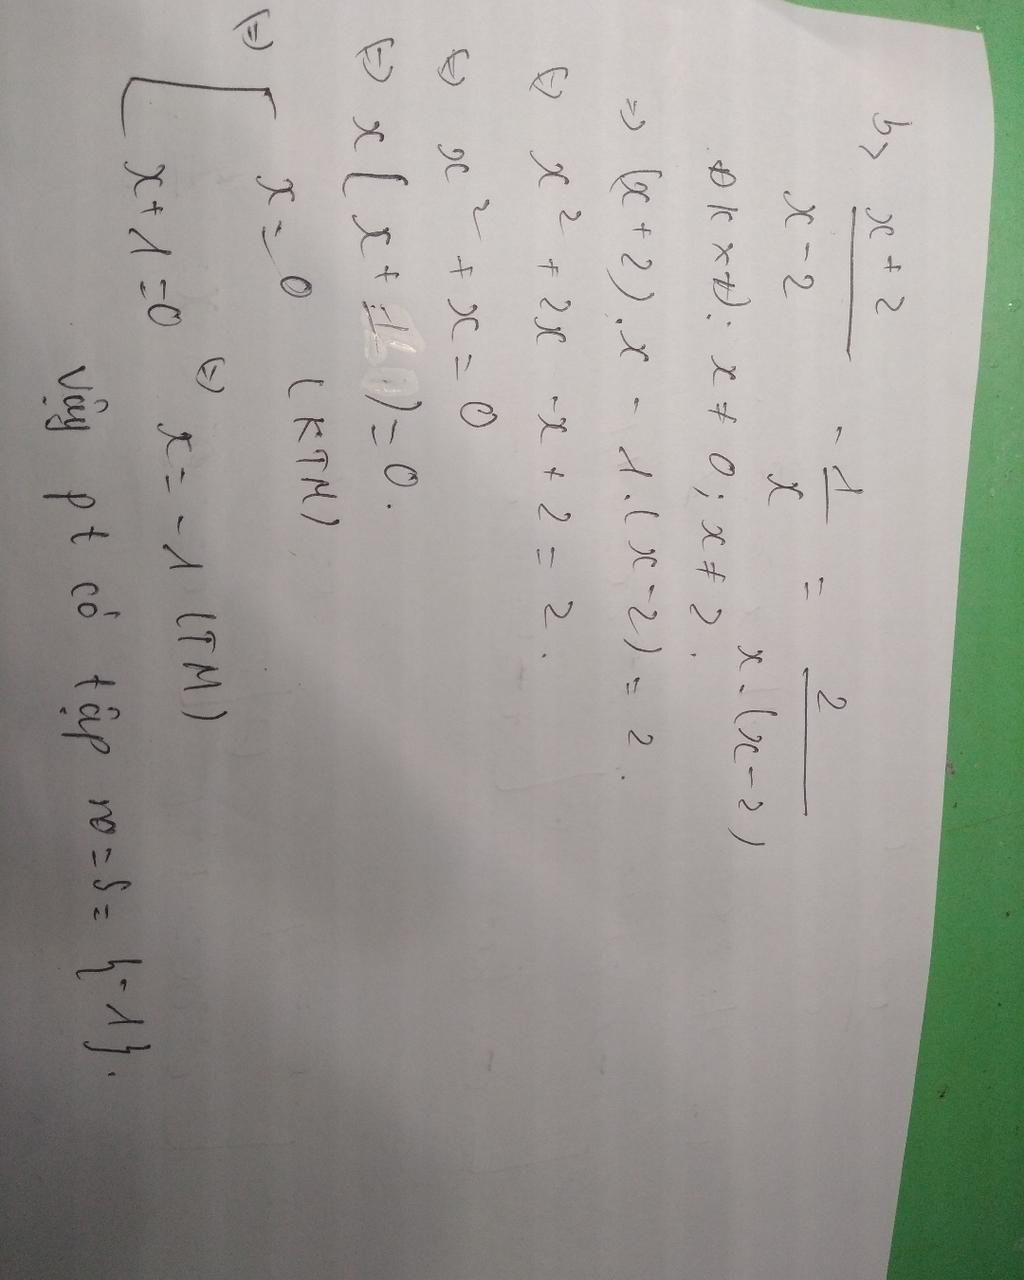 b> x+2 / x-2 - 1 / x = 2 / x.(x-2)
ĐKXĐ: x ≠ 0; x ≠ 2.
=> (x+2).x - 1.(x-2) = 2.
(=) x² + 2x - x + 2 = 2.
(=) x² + x = 0
(=) x(x+1) = 0.
(=) [ x = 0 (KTM)
x+1=0 (=) x = -1 (TM)
Vậy pt có tập no = S = {-1}.